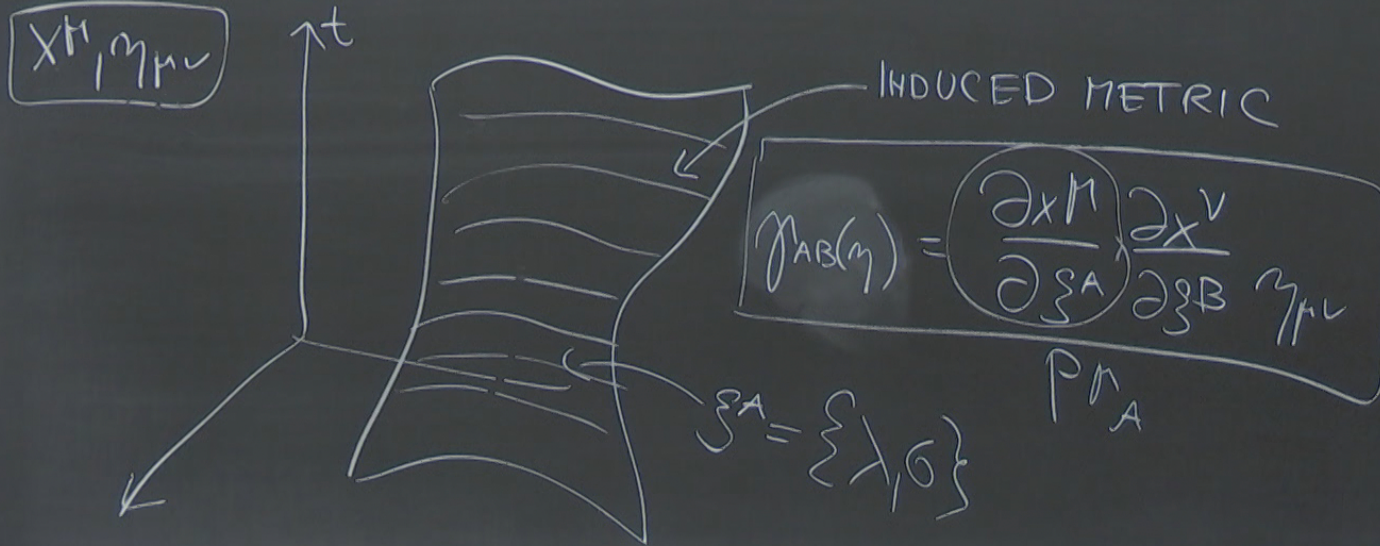 X^μ, η_μν
t
INDUCED METRIC
γ_AB(η) = ∂x^μ/∂ξ^A ∂x^ν/∂ξ^B η_μν
P^μ_A
ξ^A = {λ,σ}